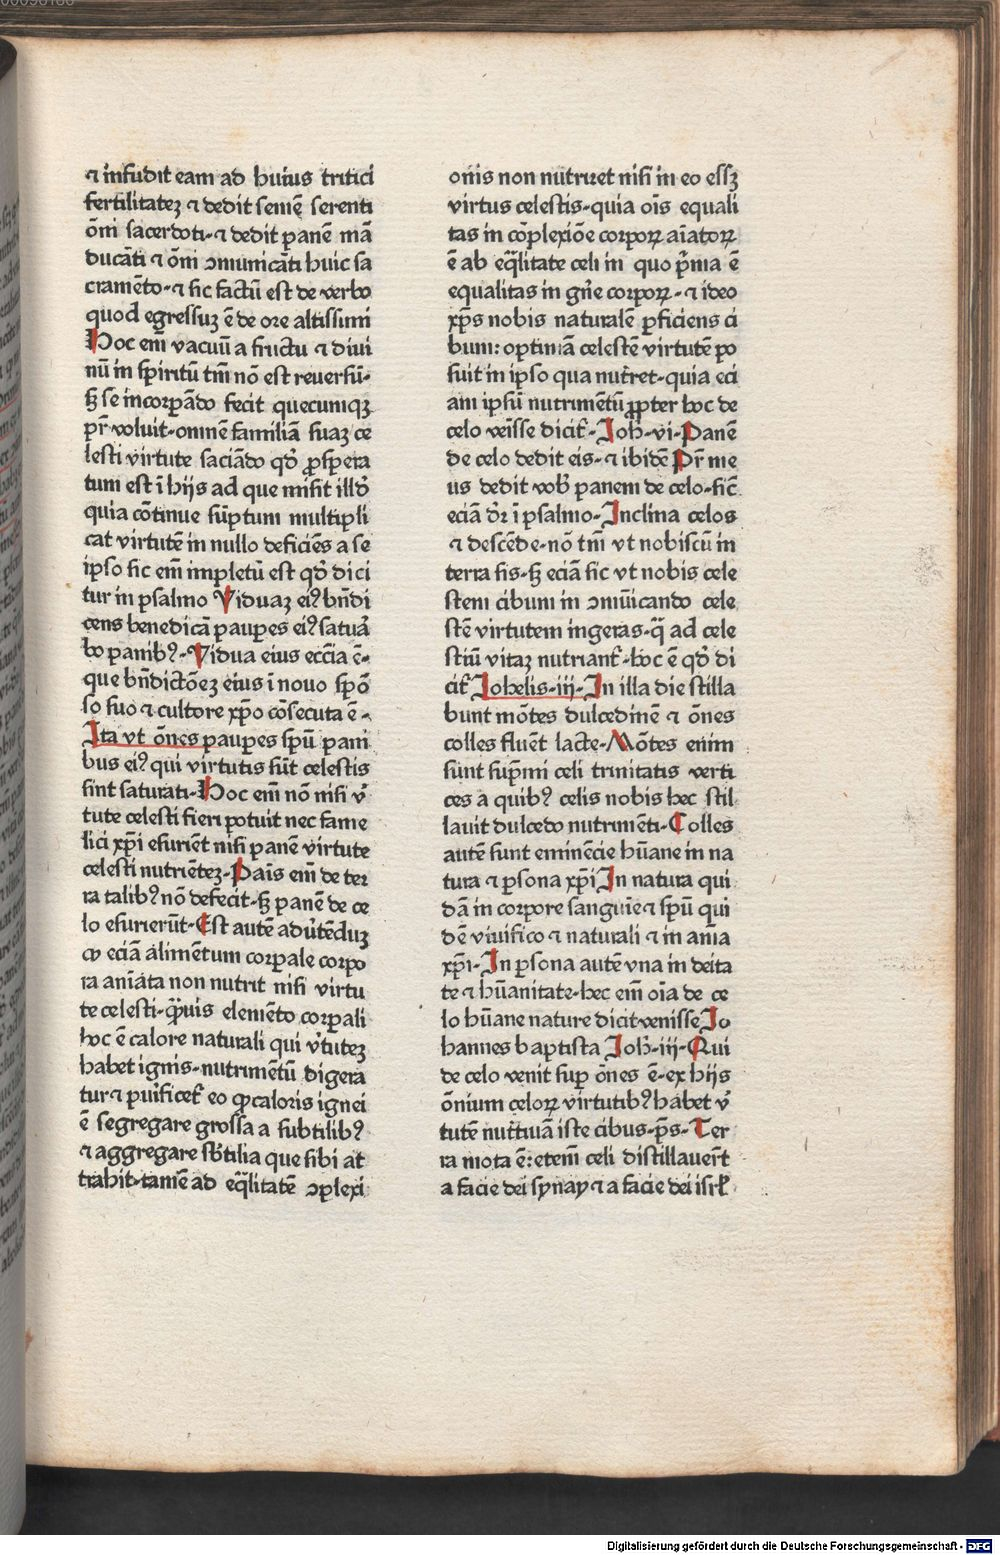 ⁊ infudit eam ad huius tritici
fertilitateʒ ⁊ dedit semē serenti
ōni sacerdoti·⁊ dedit panē mā
ducāti ⁊ ōni ɔmunicāti huic sa
cramēto·⁊ sic factū est de verbo
quod egressuʒ ē de ore altissimi
Hoc em̄ vacuū a fructu ⁊ divi
nū in spiritū tm̄ nō est reversū·
sʒ se incorꝑādo fecit quecumqʒ
pr̄ voluit·omnē familiā suaʒ ce
lesti virtute saciādo qd̄ ꝓsꝑa
tum est ī hijs ad que misit illd̄
quia cōtinue sūptum multipli
cat virtutē in nullo deficiēs a se
ipso sic em̄ impletū est qd̄ dici
tur in psalmo Viduaʒ eiꝰ bn̄di
cens benedicā pauꝑes eiꝰ satura
bo panibꝰ·Vidua eius eccīa ē·
que bn̄dictōeʒ eius ī novo spō
so suo ⁊ cultore xp̄o cōsecuta ē·
Ita vt ōnes pauꝑes spū pani
bus eiꝰ qui virtutis sūt celestis
sint saturati·Hoc em̄ nō nisi v̄
tute celesti fieri potuit nec fame
lici xp̄i esurient nisi panē virtute
celesti nutrienteʒ·Panis em̄ de ter
ra talibꝰ nō defecit·sʒ panē de ce
lo esurierūt·Est autē adv̄tēduʒ
ꝙ eciā alimētum corꝑale corpo
ra aniāta non nutrit nisi virtu
te celesti·q̄uis elemēto corꝑali
hoc ē calore naturali qui v̄tuteʒ
habet ignis·nutrimētū digera
tur ⁊ purificet̄ eo ꝙ caloris ignei
ē segregare grossa a subtilibꝰ
⁊ aggregare sb̄tilia que sibi at
trahit·tamē ad eq̄litatē ɔplexi
onis non nutriret nisi in eo essʒ
virtus celestis·quia oīs equali
tas in cōplexiōe corpoꝝ aīatoꝝ
ē ab eq̄litate celi in quo p̄ma ē
equalitas in gn̄e corpoꝝ·⁊ ideo
xp̄s nobis naturalē ꝑficiens ci
bum: optimā celestē virtutē po
suit in ipso qua nutret·quia eci
am ipsū nutrimētū ꝓpter hoc de
celo venisse dicit̄·Joh̄·vi·Panē
de celo dedit eis·⁊ ibidē Pr̄ me
us dedit vob̄ panem de celo·sic
eciā dr̄ ī psalmo·Inclina celos
⁊ descēde·nō tm̄ vt nobiscū in
terra sis·sʒ eciā sic vt nobis cele
stem cibum in ɔmūicando cele
stē virtutem ingeras·q̄ ad cele
stiū vitaʒ nutriant̄·hoc ē qd̄ di
cit̄ Johelis·iij·In illa die stilla
bunt mōtes dulcedinē ⁊ ōnes
colles fluēt lacte·Mōtes enim
sunt sup̄mi celi trinitatis verti
ces a quibꝰ celis nobis hec stil
lavit dulcedo nutrimēti·Colles
autē sunt eminēcie hūane in na
tura ⁊ ꝑsona xp̄i In natura qui
dā in corpore sanguīe ⁊ spū qui
dē vivifico ⁊ naturali ⁊ in anīa
xp̄i·In ꝑsona autē vna in deita
te ⁊ hūanitate·hec em̄ oīa de ce
lo hūane nature dicit venisse Jo
hannes baptista Joh̄·iij·Qui
de celo venit suꝑ ōnes ē·ex hijs
ōnium celoꝝ virtutibꝰ habet v̄
tutē nutrīvā iste cibus·ps̄·Ter
ra mota ē: etem̄ celi distillaver̄t
a facie dei synay ⁊ a facie dei isrl̄
Digitalisierung gefördert durch die Deutsche Forschungsgemeinschaft - DFG